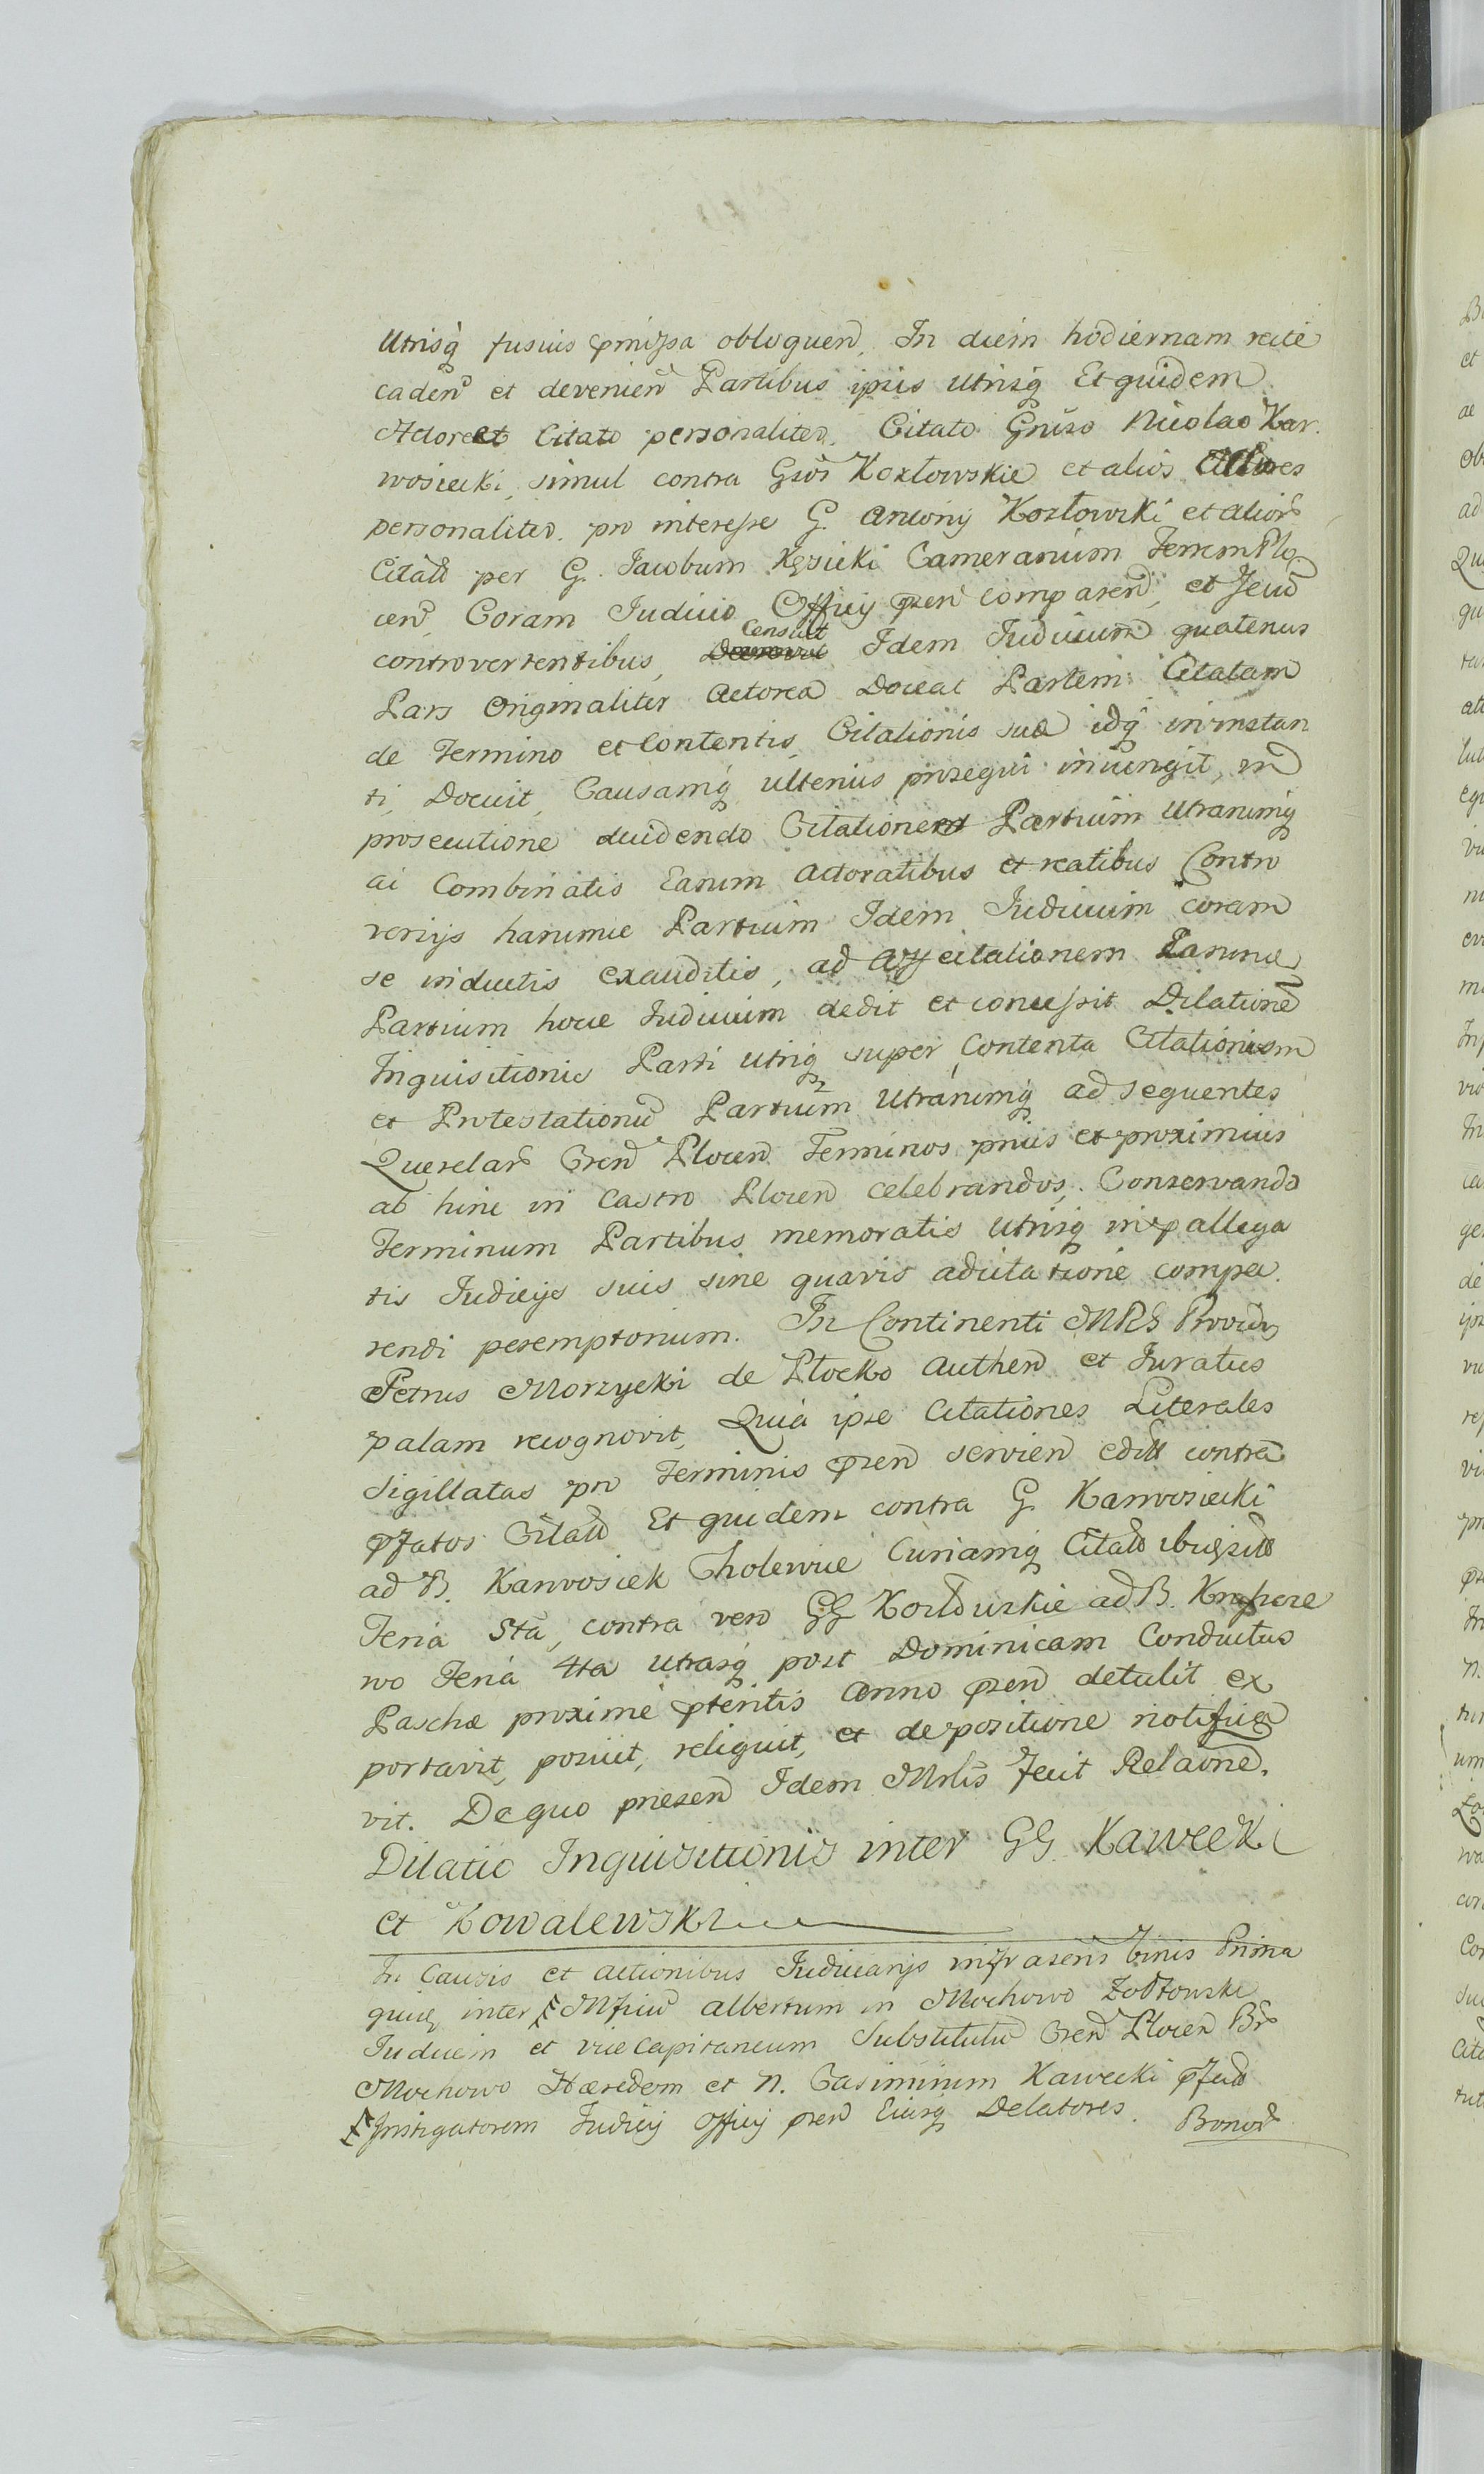 Utrisq fusius pmissa obloquen, In diem hodiernam recte
caden et devenien Partibus ipsis utrisq Et quidem
Actore et Citato personaliter. Citato Gnuso Nicolao Kar.
wosiecki, simul contra Gsos Kozłowskie et alios
personaliter. pro interesse G. Antonij Kozłowski et alior
Citat per G. Jacobum Kęsicki Camerarium Terrem Plo
cen, Coram Judicio Officij pzen comparen, et
controvertentibus, Censuit Idem Judicium quatenus
Pars Originaliter Actorea Doceat Partem Citatam
de Termino et Contentis Citationis sua idq in instan
ti, Docuit, Causamq ulterius prosequi iniungit, in
prosecutione duidendo Citationes Partium Utrarumq
ai Combinatis Earum Actoratibus et reatibus Contro
versijs harumce Partium Idem Judicium coram
se inductis exauditis, ad Affectationem Earumce
Partium hocce Judicium dedit et concessit Dilatione
Inquisitionis Parti utriq super Contenta Citationum
et Protestationu Partium Utrarumq ad sequentes
Querelar Gren Plocen Terminos prius et proximius
ab hinc in Castro Plocen celebrandos. Conservando
Terminum Partibus memoratis utrisq in pallega
tis Judicijs suis sine quavis adcitatione compa
rendi peremptorium. In Continenti MRS Provid
Petrus Morzycki de Płocko Authen et Juratus
palam recognovit, Quia ipse Citationes Literales
Sigillatas pro Terminis pzen servien edit contra
pfatos Citat Et quidem contra G. Karwosiecki
ad B. Karwosiek Cholewice Curiamq Citat
Feria 5ta, contra vero GG Kozłowskie ad B.
wo Feria 4ta utrasq post Dominicam Conductus
Paschæ proxime pteritis Anno pzen detulit ex
portavit, posuit, reliquit, et de positione notifica
vit. De quo præsen Idem Mrlis fecit Relaone.
Dilatio Inquisitionis inter GG. Kawecki
et Kowalewski
In Causis et actionibus Judiciarijs infrascris binis Prima
quidq inter Mficu Albertum in Mochowo Zołtowski
Judicem et vice Capitaneum Substitutu Gren Plocen Br
Mochowo Hæredem et N. Casimirum Kawecki
Instigatorem Judicij Officij pzen Eiusq Delatores.
Bonor